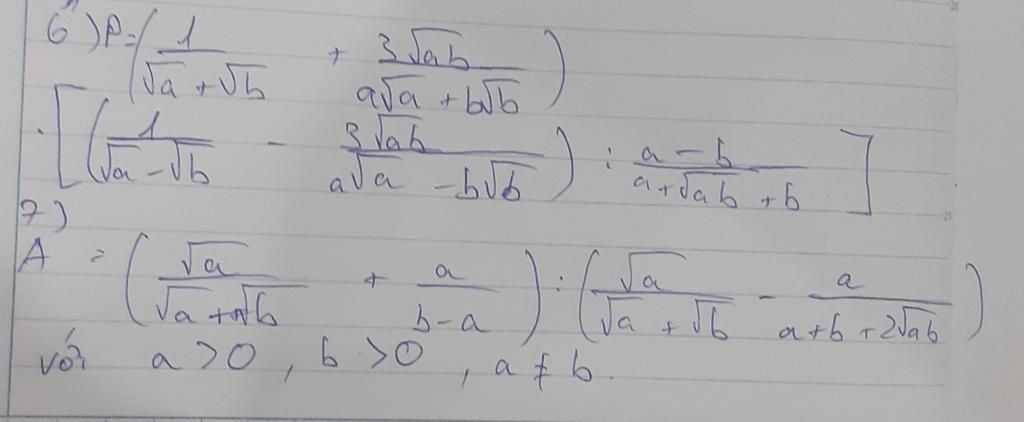 6) P = (1/(√a + √b) + 3√ab/(a√a + b√b))
. [(1/(√a - √b) - 3√ab/(a√a - b√b)) : (a - b)/(a + √ab + b)]
7)
A = (√a/(√a + √b) + a/(b - a)) : (√a/(√a + √b) - a/(a + b + 2√ab))
với a > 0, b > 0, a ≠ b.